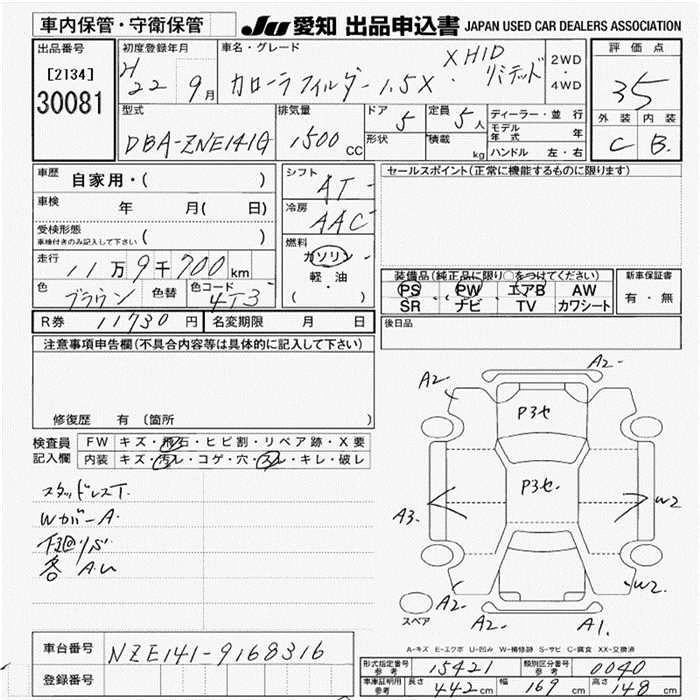 車内保管・守衛保管
JU 愛知 出品申込書 JAPAN USED CAR DEALERS ASSOCIATION
出品番号
[2134]
30081
初度登録年月
H 22 9月
車名・グレード
カローラフィルダー 1.5X ・ XHID リミテッド
2WD
・
4WD
評価点
35
外装 内装
C B.
型式
DBA-ZNE141G
排気量
1500 CC
ドア 5
形状
定員 5人
積載 kg
ディーラー・並行
モデル年式 年
ハンドル 左・右
車歴 自家用・( )
車検 年 月( 日)
受検形態
車検付きのみ記入して下さい ( )
走行 11万9千700km
色 ブラウン 色替 色コード 4T3
シフト AT
冷房 AAC
燃料
ガソリン
軽・油
( )
セールスポイント(正常に機能するものに限ります)
装備品(純正品に限り○をつけてください)
PS PW エアB AW
SR ナビ TV カワシート
新車保証書
有・無
後日品
R券 11730円 名変期限 月 日
注意事項申告欄(不具合内容等は具体的に記入して下さい)
修復歴 有 〔箇所 〕
検査員記入欄
FW キズ・飛石・ヒビ割・リペア跡・X要
内装 キズ・汚レ・コゲ・穴・スレ・キレ・破レ
スタッドレスT.
WカバーA.
下廻りS
各 A.U
A2-
A2-
P3セ
P3セ.
A3.
W2
W2.
A2-
A2-
A1.
スペア
A-キズ E-エクボ U-凹み W-補修跡 S-サビ C-腐食 XX-交換済
車台番号 NZE141-9168316
登録番号
形式指定番号 参考 15421 類別区分番号 参考 0040
車庫証明用 参考 長さ 442cm 幅 169cm 高さ 148cm